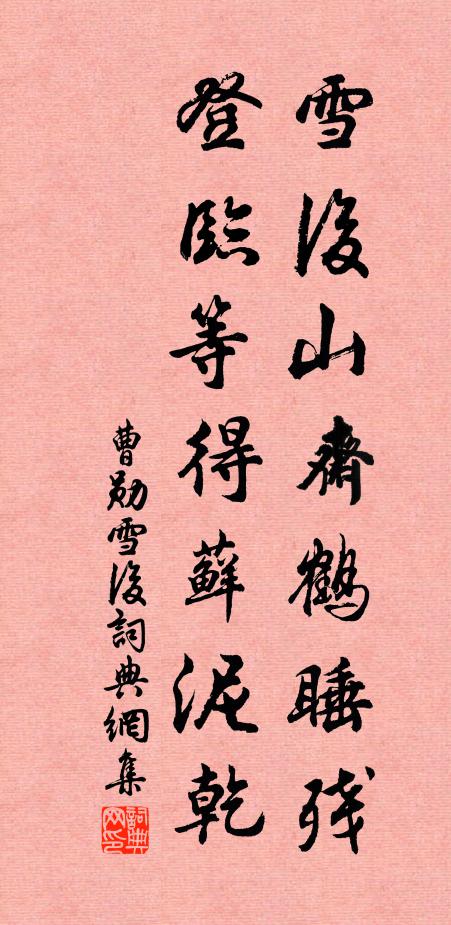 雪後山齋鶴睡残
登臨等得蘚泥乾
曹勛雪後詞典網集
詞典网印